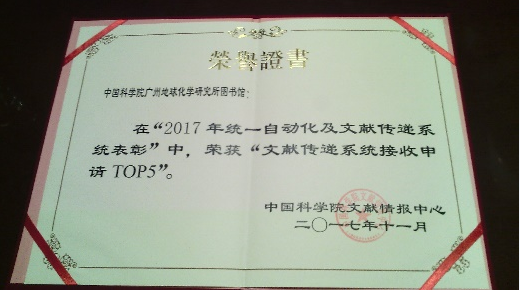 榮譽證書
中国科学院广州地球化学研究所图书馆:
在“2017年统一自动化及文献传递系
统表彰”中，荣获“文献传递系统接收申
请TOP5”。
中国科学院文献情报中心
二〇一七年十一月